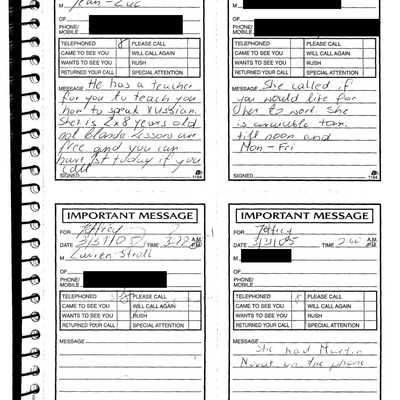 M Jean-Luc
OF
PHONE/
MOBILE
TELEPHONED PLEASE CALL
CAME TO SEE YOU WILL CALL AGAIN
WANTS TO SEE YOU RUSH
RETURNED YOUR CALL SPECIAL ATTENTION
MESSAGE He has a teacher
for you to teach you
how to speak russian.
She is 2x8 years old
not blonde. Lessons are
free and you can
have 1st today if you
call
SIGNED 1184
M
OF
PHONE/
MOBILE
TELEPHONED PLEASE CALL
CAME TO SEE YOU WILL CALL AGAIN
WANTS TO SEE YOU RUSH
RETURNED YOUR CALL SPECIAL ATTENTION
MESSAGE She called if
you would like for
her to work. She
is available tom.
till noon and
Mon-Fri
SIGNED 1184
IMPORTANT MESSAGE
FOR Jeffrey
DATE 3/31/05 TIME A.M. P.M.
M
OF
PHONE/
MOBILE
TELEPHONED PLEASE CALL
CAME TO SEE YOU WILL CALL AGAIN
WANTS TO SEE YOU RUSH
RETURNED YOUR CALL SPECIAL ATTENTION
MESSAGE
IMPORTANT MESSAGE
FOR Jeffrey
DATE 3/31/05 TIME 2:40 A.M. P.M.
M
OF
PHONE/
MOBILE
TELEPHONED PLEASE CALL
CAME TO SEE YOU WILL CALL AGAIN
WANTS TO SEE YOU RUSH
RETURNED YOUR CALL SPECIAL ATTENTION
MESSAGE
She had Martin
on the phone